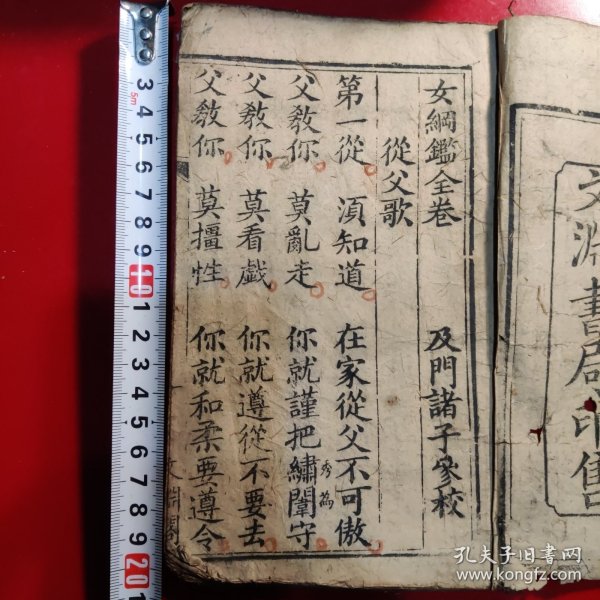 文淵書局印售
女綱鑑全卷 及門諸子參校
從父歌
第一從 須知道 在家從父不可傲
父教你 莫亂走 你就謹把繡闈守
秀為
父教你 莫看戯 你就遵從不要去
父教你 莫擅性 你就和柔要遵令
3 4 5 6 7 8 9 10 1 2 3 4 5 6 7 8 9 20
5m
孔夫子旧书网
www.kongfz.com